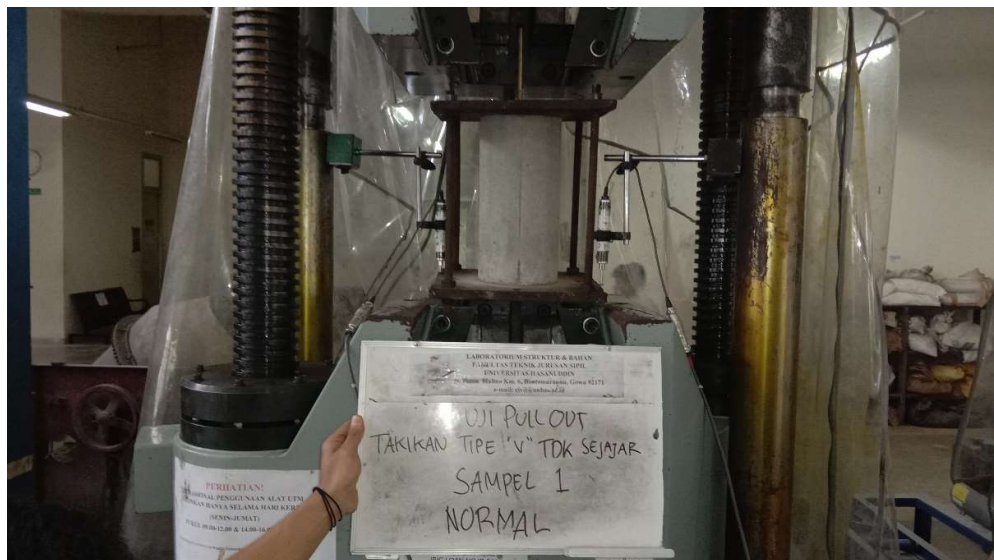 LABORATORIUM STRUKTUR & BAHAN
FAKULTAS TEKNIK JURUSAN SIPIL
UNIVERSITAS HASANUDDIN
Malino Km. 6, Bontomarannu, Gowa 92171
UJI PULL OUT
TAKIKAN TIPE "V" TDK SEJAJAR
SAMPEL 1
NORMAL
PERHATIAN!
PENGGUNAAN ALAT UTM
HANYA SELAMA HARI
(SENIN-JUMAT)